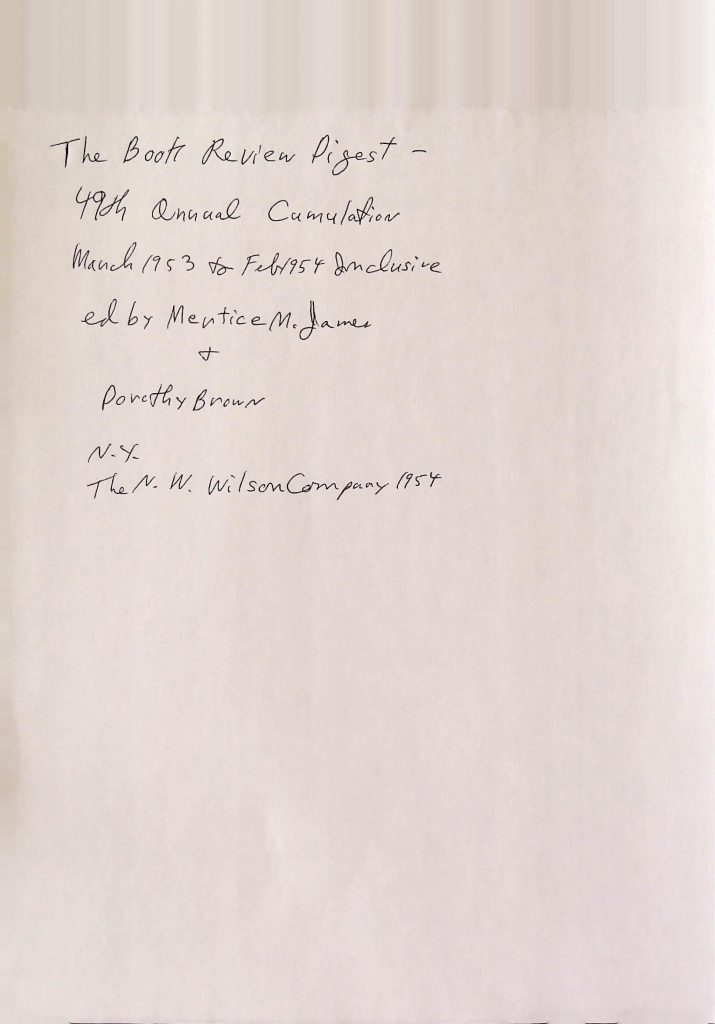 The Book Review Digest –
49th Annual Cumulation
March 1953 to Feb 1954 Inclusive
ed by Mertice M. James
+
Dorothy Brown
N.Y.
The N. W. Wilson Company 1954